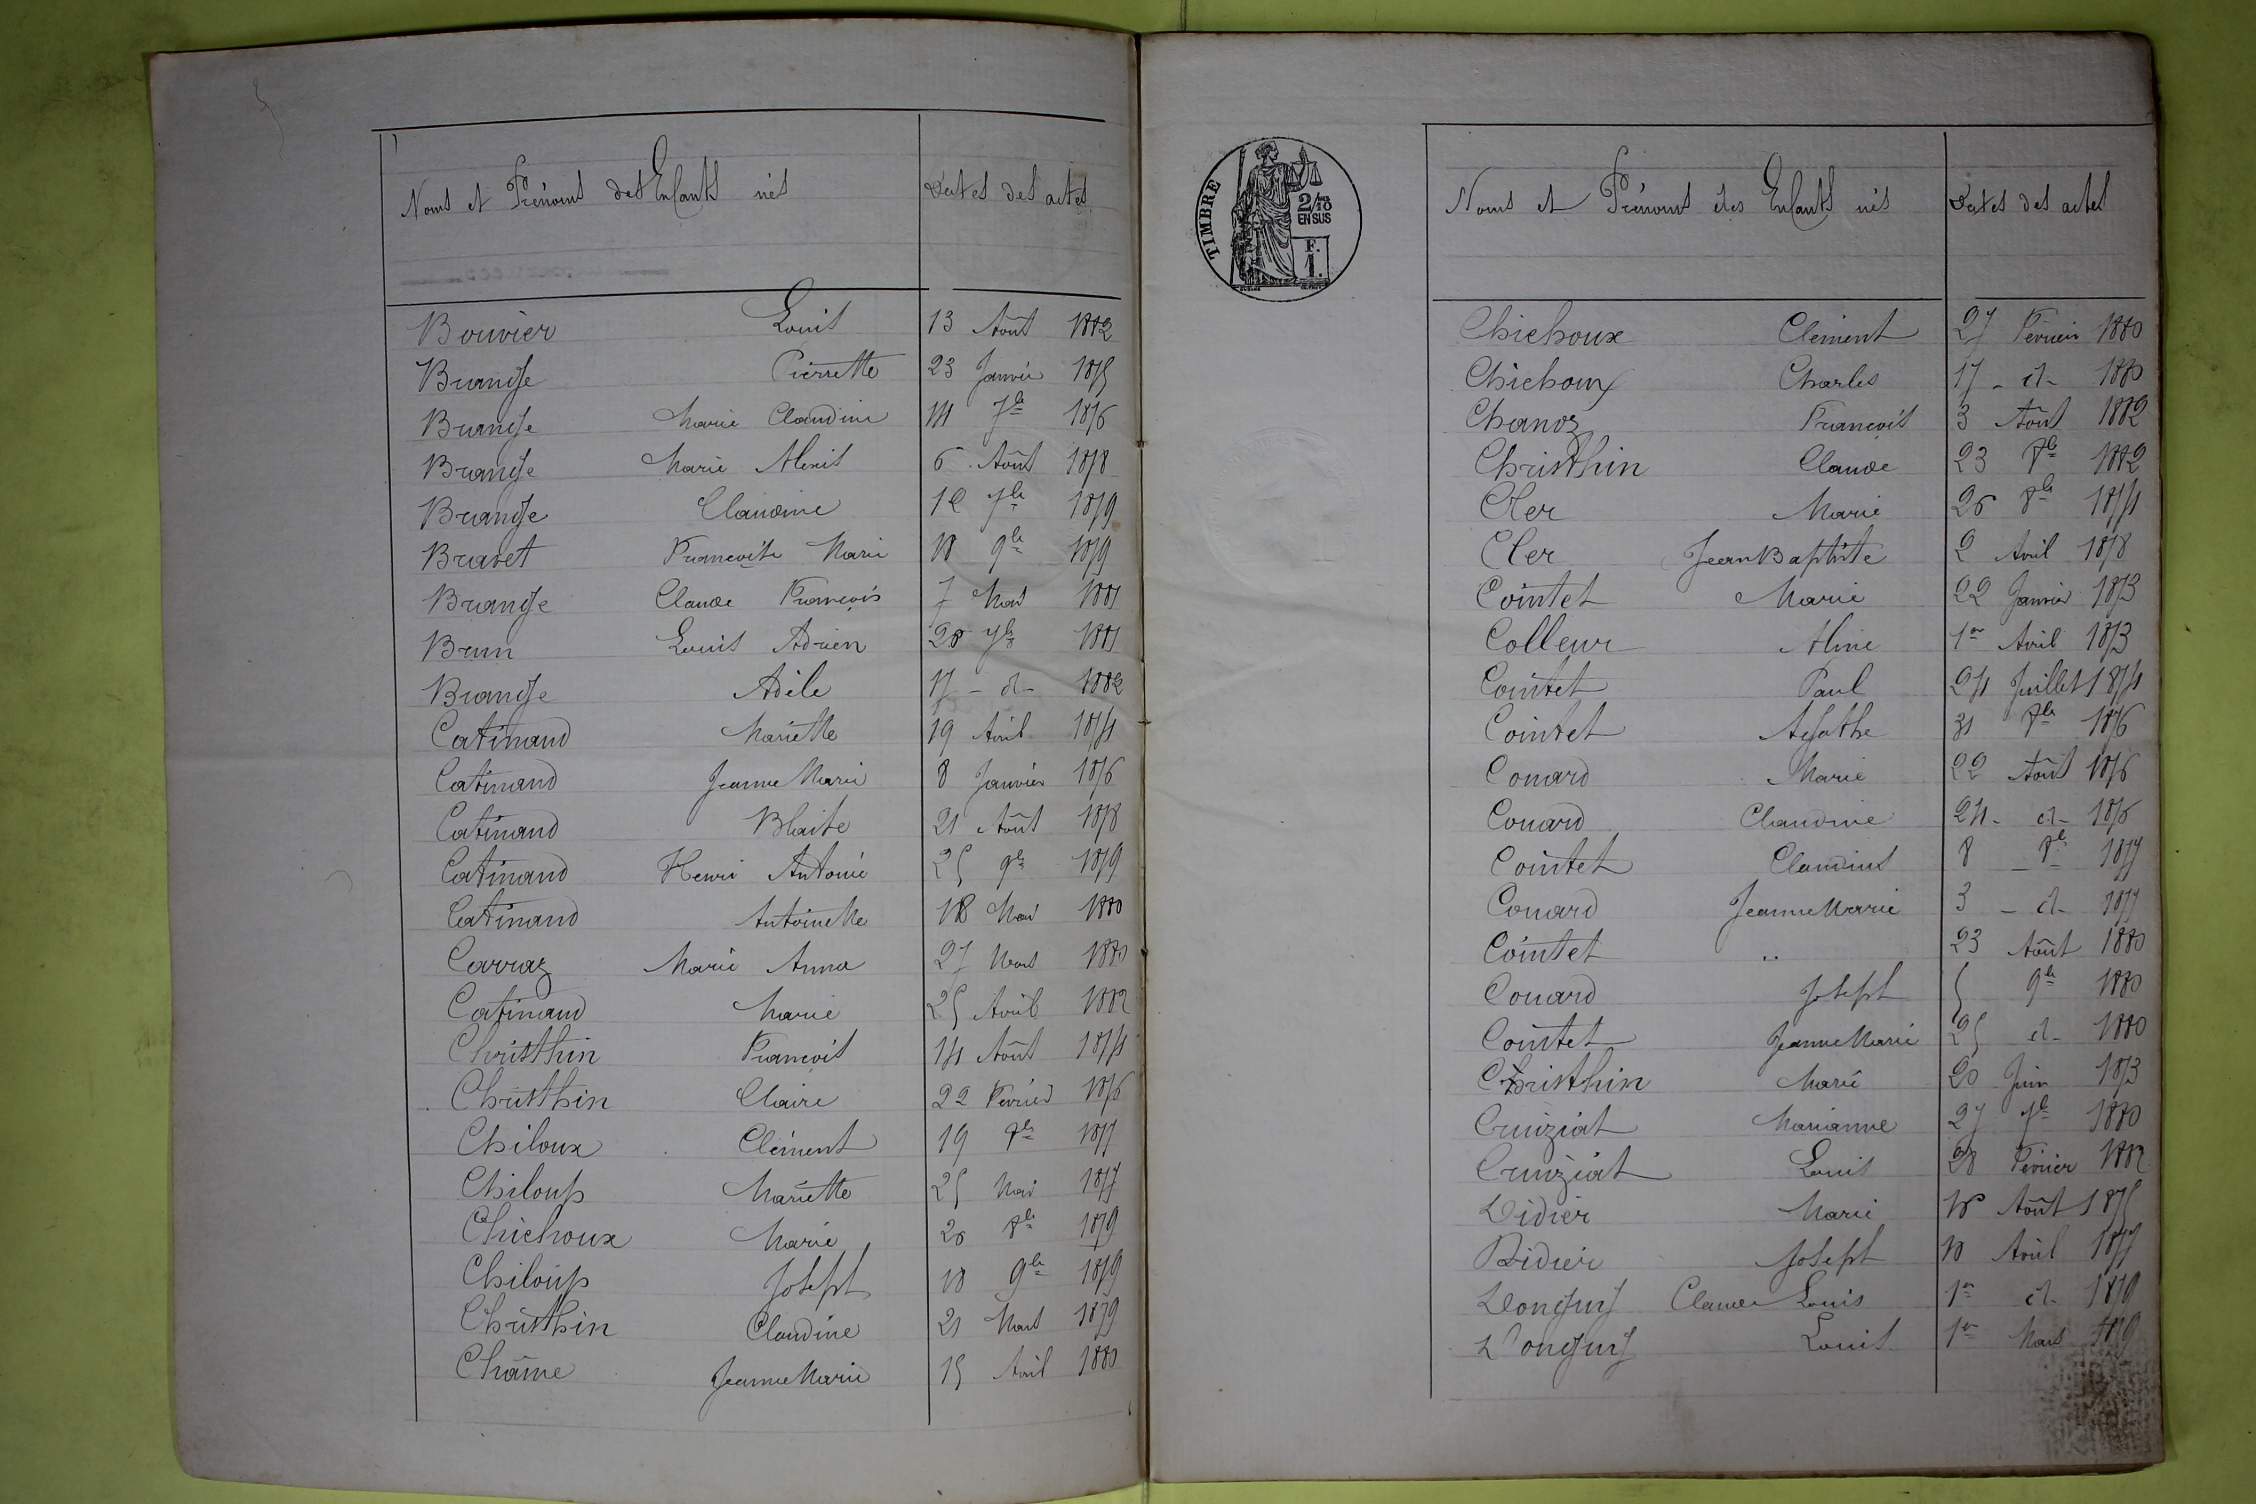 Noms et Prénoms des Enfants nés Dates des actes
Bouvier Louis 13 Août 1882
Brange Pierrette 23 Janvier 1875
Brange Marie Claudine 14 7bre 1876
Brange Marie Alexis 6 Août 1878
Brange Claudine 12 7bre 1879
Bravet Françoise Marie 10 9bre 1879
Brange Claude François 7 1881
Brun Louis Adrien 28 7bre 1881
Brange Adèle 17 - d- 1882
Catinaud Mariette 19 Avril 1874
Catinaud Jeanne Marie 8 Janvier 1876
Catinaud Blaise 21 Août 1878
Catinaud Henri Antoine 25 9bre 1879
Catinaud Antoinette 18 Mai 1880
Carraz Marie Anna 27 Mars 1880
Catinaud Marie 25 Avril 1882
Christhin François 14 Août 1874
Christhin Claire 22 Février 1876
Chiloux Clément 19 8bre 1877
Chiloup Mariette 25 Mai 1877
Chichoux Marie 20 8bre 1879
Chiloup Joseph 10 9bre 1879
Christhin Claudine 21 Mars 1879
Châme Jeanne Marie 15 Avril 1880
TIMBRE
2/10 EN SUS
F. 1.
Noms et Prénoms des Enfants nés Dates des actes
Chichoux Clément 27 Février 1880
Chichoux Charles 17 - d- 1880
Chanoz François 3 Août 1882
Christhin Claude 23 8bre 1882
Cler Marie 26 8bre 1874
Cler Jean Baptiste 2 Avril 1878
Cointet Marie 22 Janvier 1873
Colleur Aline 1er Avril 1873
Cointet Paul 24 Juillet 1874
Cointet Agathe 31 8bre 1876
Couard Marie 22 Août 1876
Couard Claudine 24 - d- 1876
Cointet Claudius 8 8bre 1877
Couard Jeanne Marie 3 - d- 1877
Cointet .. 23 Août 1880
Couard Joseph 5 9bre 1880
Cointet Jeanne Marie 25 d- 1880
Christhin Marie 20 Juin 1873
Cruiziat Marianne 27 7bre 1880
Cruiziat Louis 28 Février 1882
Didier Marie Août 1875
Didier Joseph 10 Avril 1877
Donguy Claude Louis 1er d- 1879
Donguy Louis 1er Mars 1879